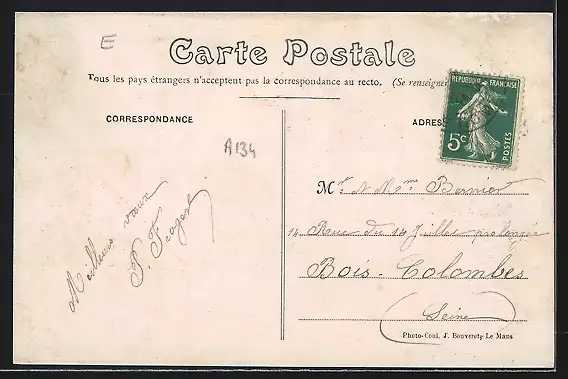 E
Carte Postale
Tous les pays étrangers n'acceptent pas la correspondance au recto. (Se renseigner
REPUBLIQUE FRANÇAISE
5c
POSTES
CORRESPONDANCE
ADRES
A134
Meilleurs vœux
Mr & Mme Bernier
14 Rue du 14 Juillet prolongée
Bois-Colombes
Seine
Photo-Coul. J. Bouveret, Le Mans